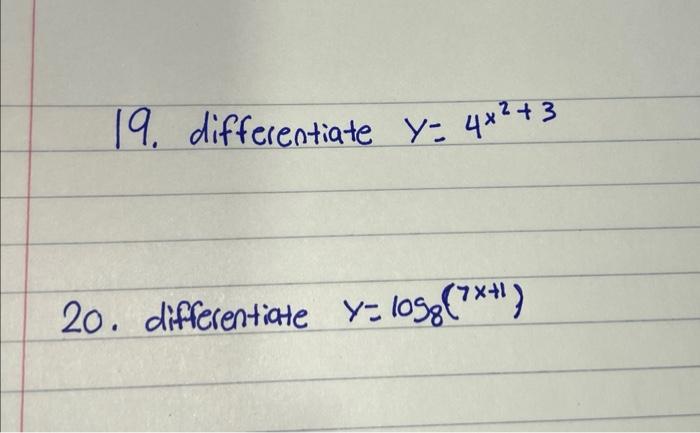 19. differentiate y= 4^x²+3
20. differentiate y= log₈(7x+1)